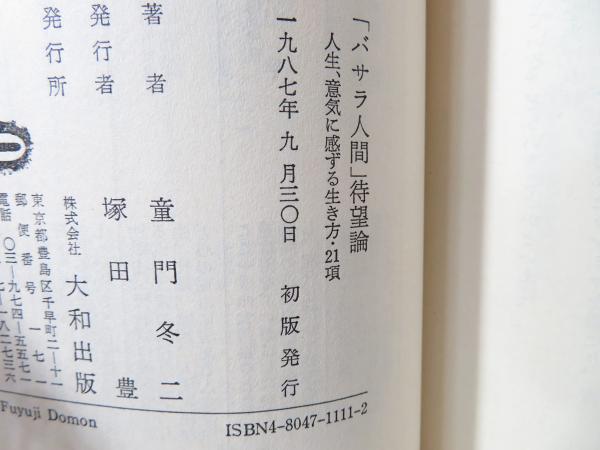 「バサラ人間」待望論
人生、意気に感ずる生き方・21項
一九八七年九月三〇日 初版発行
著者 童門冬二
発行者 塚田豊
発行所 株式会社 大和出版
東京都豊島区千早町二ー十一
郵便番号 一七一
電話 〇三ー九七四ー五五七一
Fuyuji Domon
ISBN4-8047-1111-2